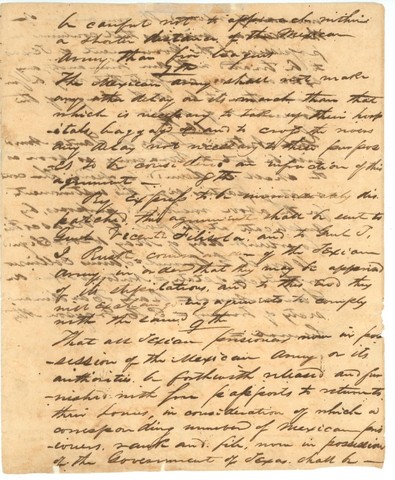 be careful not to approach within
a shorter distance of the Mexican
Army than five leagues
7th
The Mexican army shall not make
any other delay on its march than that
which is necessary to take up their hosp
itals, baggage & and to cross the rivers
any delay not necessary to these purpos
es to be considered an infraction of this
agreement — 8th
By express to be immediately dis
patched, this agreement shall be sent to
Genl Vicente Filisola and to Genl T.
J. Rusk commander of the Texian
Army, in order that they may be apprised
of its stipulations, and to this end they
will exchange engagements to comply
with the same 9th
That all Texian prisoners now in pos
session of the Mexican Army or its
authorities be forthwith released and fur
nished with free passports to return to
their homes, in consideration of which a
corresponding number of Mexican pris
oners, rank and file, now in possession
of the Government of Texas shall be